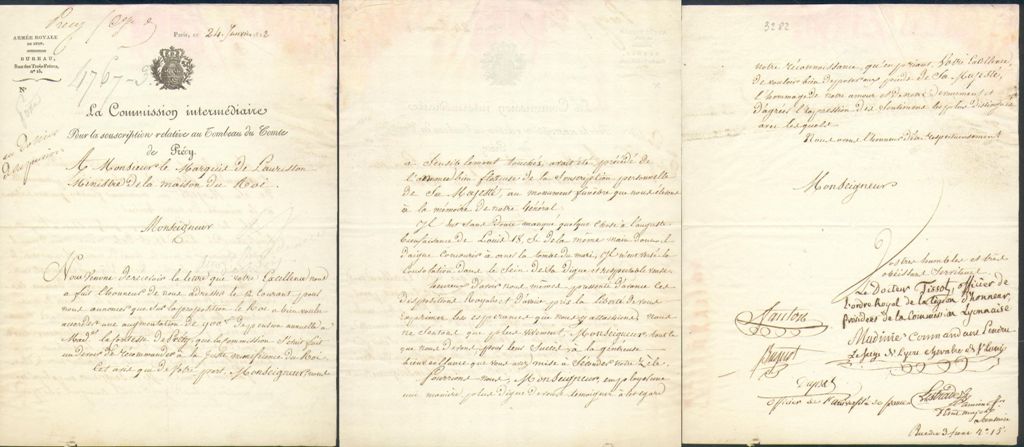 Précy
ARMÉE ROYALE
DE LYON.
BUREAU,
Rue des Trois-Frères,
n° 15.
N°
Paris, ce 24 Janvier
4767-
La Commission intermédiaire
Pour la souscription relative au Tombeau du Comte
de Précy.
A Monsieur le Marquis de Lauriston
Ministre de la maison du Roi.
Monseigneur
Nous venons de recevoir la lettre que votre Excellence nous
a fait l'honneur de nous adresser le 12 courant pour
nous annoncer que sur sa proposition le Roi a bien voulu
accorder une augmentation de 900 f de pension annuelle à
la Comtesse de Précy que la Commission s'était fait
un devoir de recommander à la Juste munificence du Roi.
Cet avis que de votre part, Monseigneur, nous
a Sensiblement touchés, avait été précédé de
l'annonce bien flateuse de la Souscription personnelle
de Sa Majesté, au monument funèbre que nous élevons
à la mémoire de notre Général.
Il eut sans doute manqué quelque chose à l'auguste
bienfaisance de Louis 18, Si de la même main dont il
daigne concourir à orner la tombe du mari, Il n'eut versé la
Consolation dans le Sein de Sa digne et respectable veuve
heureux d'avoir nous mêmes pressenti d'avance ces
dispositions Royales et d'avoir pris la liberté de vous
exprimer les espérances que nous
ne Sentons que plus vivement, Monseigneur, tout ce
que nous devons pour leur Succès, à la généreuse
bienveillance que vous avez mise à Seconder notre Zèle.
Pourrions nous, Monseigneur, employer
une manière plus digne de vous témoigner à cet égard
3282
notre reconnaissance, qu'en priant Votre Excellence
de vouloir bien déposer aux pieds de Sa Majesté,
l'hommage de notre amour et de notre dévouement, et
d'agréer l'expression des Sentimens les plus distingués
avec lesquels
Nous avons l'honneur d'être respectueusement
Monseigneur
Votre humble et très
obéissant Serviteur
Le Docteur Tissot, officier de
l'ordre Royal de la Légion d'honneur,
Président de la Commission Lyonnaise
Madinié Commandant
St Cyre Chevalier de St Louis
Dupuet
officier de
Rue des 3 frères N° 15